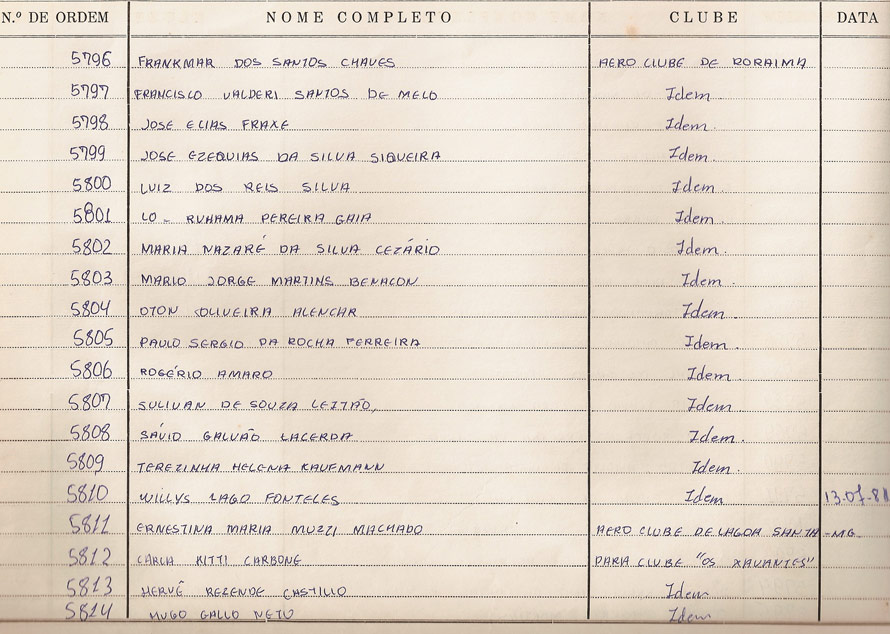 N.º DE ORDEM NOME COMPLETO CLUBE DATA
5796 FRANKMAR DOS SANTOS CHAVES AERO CLUBE DE RORAIMA
5797 FRANCISCO VALDERI SANTOS DE MELO Idem
5798 JOSE ELIAS FRAXE Idem.
5799 JOSE EZEQUIAS DA SILVA SIQUEIRA Idem.
5800 LUIZ DOS REIS SILVA Idem
5801 LO - RUHAMA PEREIRA GAIA Idem.
5802 MARIA NAZARÉ DA SILVA CEZÁRIO Idem.
5803 MARIO JORGE MARTINS BENACON Idem.
5804 OTON OLIVEIRA ALENCAR Idem.
5805 PAULO SERGIO DA ROCHA FERREIRA Idem.
5806 ROGÉRIO AMARO Idem.
5807 SULIVAN DE SOUZA LEITÃO, Idem
5808 SÁVIO GALVÃO LACERDA Idem.
5809 TEREZINHA HELENA KAUFMANN Idem.
5810 WILLYS LAGO FONTELES Idem
5811 ERNESTINA MARIA MUZZI MACHADO AERO CLUBE DE LAGOA SANTA -MG.
5812 CARLA KITTI CARBONE PARA CLUBE "OS XAVANTES"
5813 HERVÊ REZENDE CASTILLO Idem
5814 HUGO GALLO NETO Idem